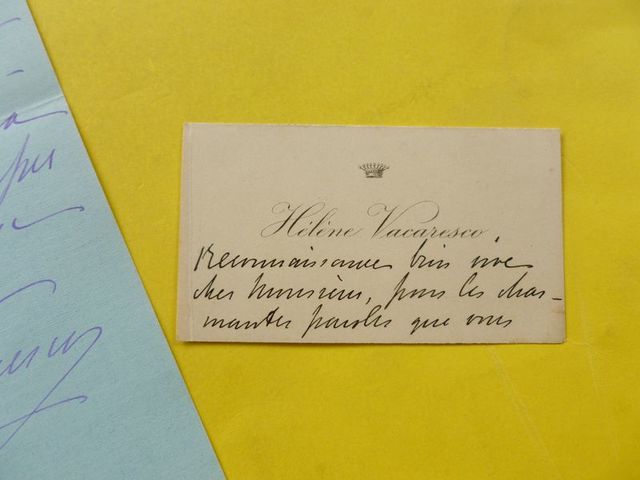 Hélène Vacaresco
Reconnaissance bien vive
cher Monsieur, pour les char-
mantes paroles que vous